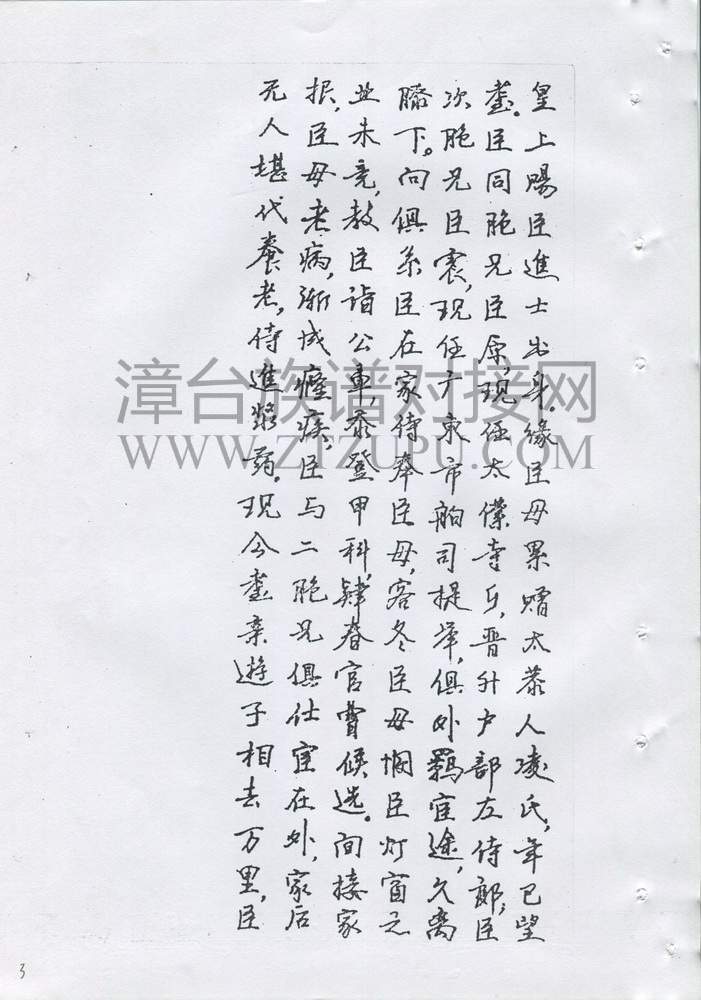 皇上賜臣進士出身。缘臣母累赠太恭人凌氏,年已望
耋。臣同胞兄臣原,现任太僕寺乡,晋升户部左侍郎,臣
次胞兄臣震,现任广東市舶司提举,俱外羁宦途,久离
膝下。向俱系臣在家侍奉臣母,客冬臣母悯臣灯窗之
业未竟,教臣诣公車,忝登甲科,肄春官曹候选。间接家
报,臣母老病,渐成癯疾,臣与二胞兄俱仕宦在外,家后
无人堪代養老,侍進漿药。现今耋亲遊子相去万里,臣
漳台族谱对接网
WWW.ZTZUPU.COM
3